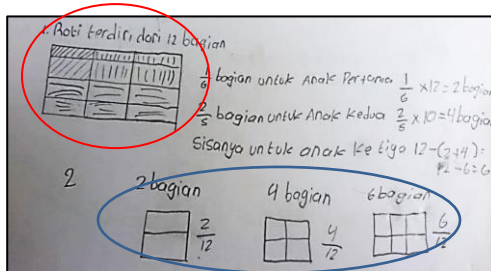 1. Roti terdiri dari 12 bagian
1/6 bagian untuk Anak Pertama 1/6 x12 = 2 bagian
2/5 bagian untuk Anak kedua 2/5 x 10 = 4 bagian
Sisanya untuk anak ke tiga 12-(2+4) =
12-6=6
2
2 bagian 4 bagian 6 bagian
2/12 4/12 6/12